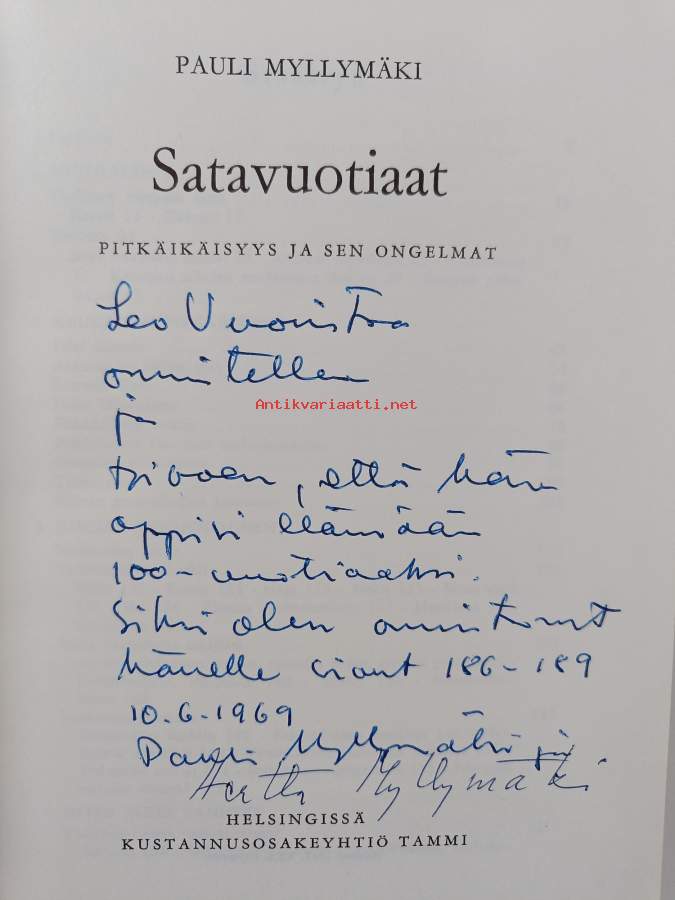 PAULI MYLLYMÄKI
Satavuotiaat
PITKÄIKÄISYYS JA SEN ONGELMAT
Leo Vuoristoa
onnitellen
Antikvariaatti.net
ja
toivoen, että hän
oppisi elämään
100-vuotiaaksi.
Siksi olen omistanut
hänelle sivut 186-189
10.6.1969
Pauli Myllymäki ja
Hertta Myllymäki
HELSINGISSÄ
KUSTANNUSOSAKEYHTIÖ TAMMI